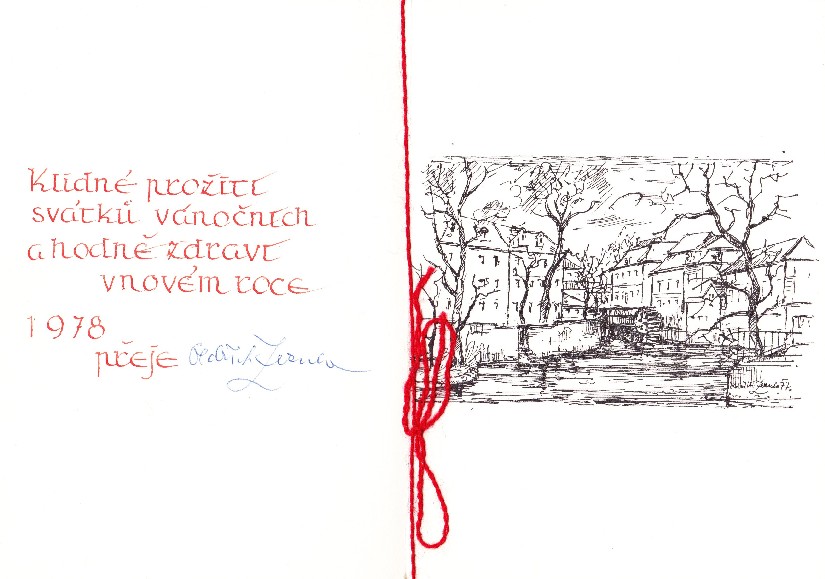 Klidné prožití
svátků vánočních
a hodně zdraví
v novém roce
1978
přeje Oldřich
77